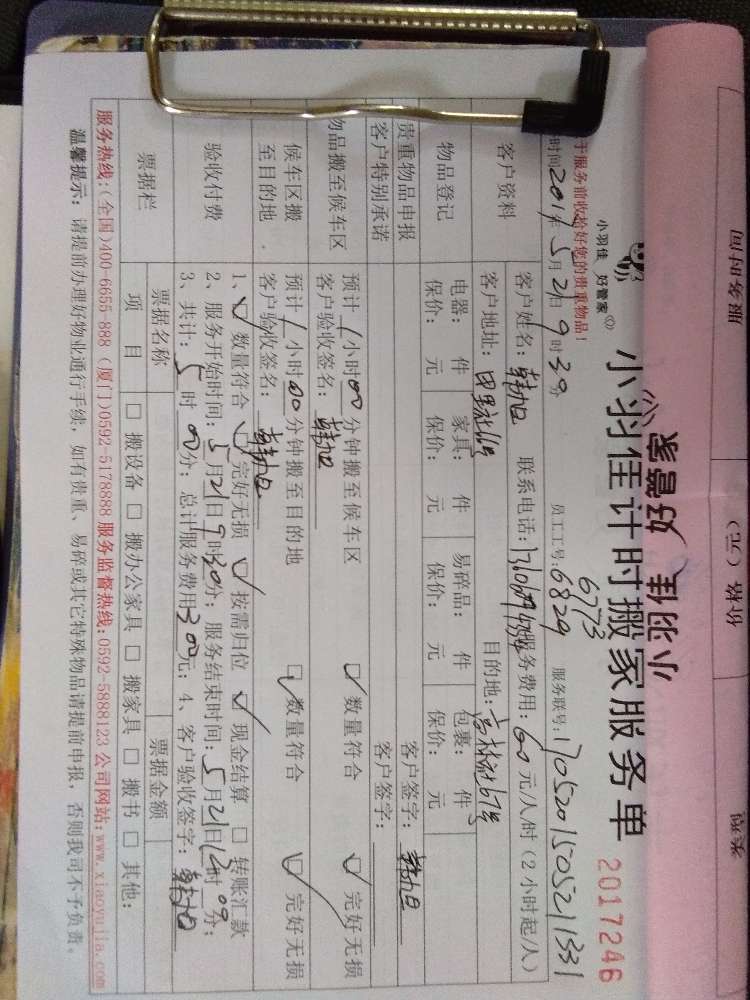 服务时间
价格（元）
小羽佳
家管家
好
小羽佳 好管家
小羽佳计时搬家服务单
2017246
于服务前收拾好您的贵重物品！
时间2017年5月21日9时30分 员工工号：6829 6773 服务联号：170520150521331
客户资料
客户姓名： 联系电话： 服务费用：60元/人/时（2小时起/人）
客户地址： 目的地：高林社67号
物品登记
电器： 件 家具： 件 易碎品： 件 包裹： 件
保价： 元 保价： 元 保价： 元 保价： 元
客户签字：
贵重物品申报
客户特别承诺
客户签字：
物品搬至候车区
预计1小时00分钟搬至候车区 数量符合 完好无损
客户验收签名：
候车区搬至目的地
预计1小时00分钟搬至目的地 数量符合 完好无损
客户验收签名：
验收付费
1、 数量符合 完好无损 按需归位 现金结算 转账汇款
2、服务开始时间：5月21日9时30分；服务结束时间：5月21日12时00分；
3、共计：5时00分；总计服务费用300元；4、客户验收签字：
票据栏
票据名称 票据金额
项目 搬设备 搬办公家具 搬家具 搬书 其他：
服务热线：(全国)400-6655-888 (厦门)0592-5178888 服务监督热线：0592-5888123 公司网站：www.xiaoyujia.com
温馨提示：请提前办理好物业通行手续，如有贵重、易碎或其它特殊物品请提前申报，否则我司不予负责。